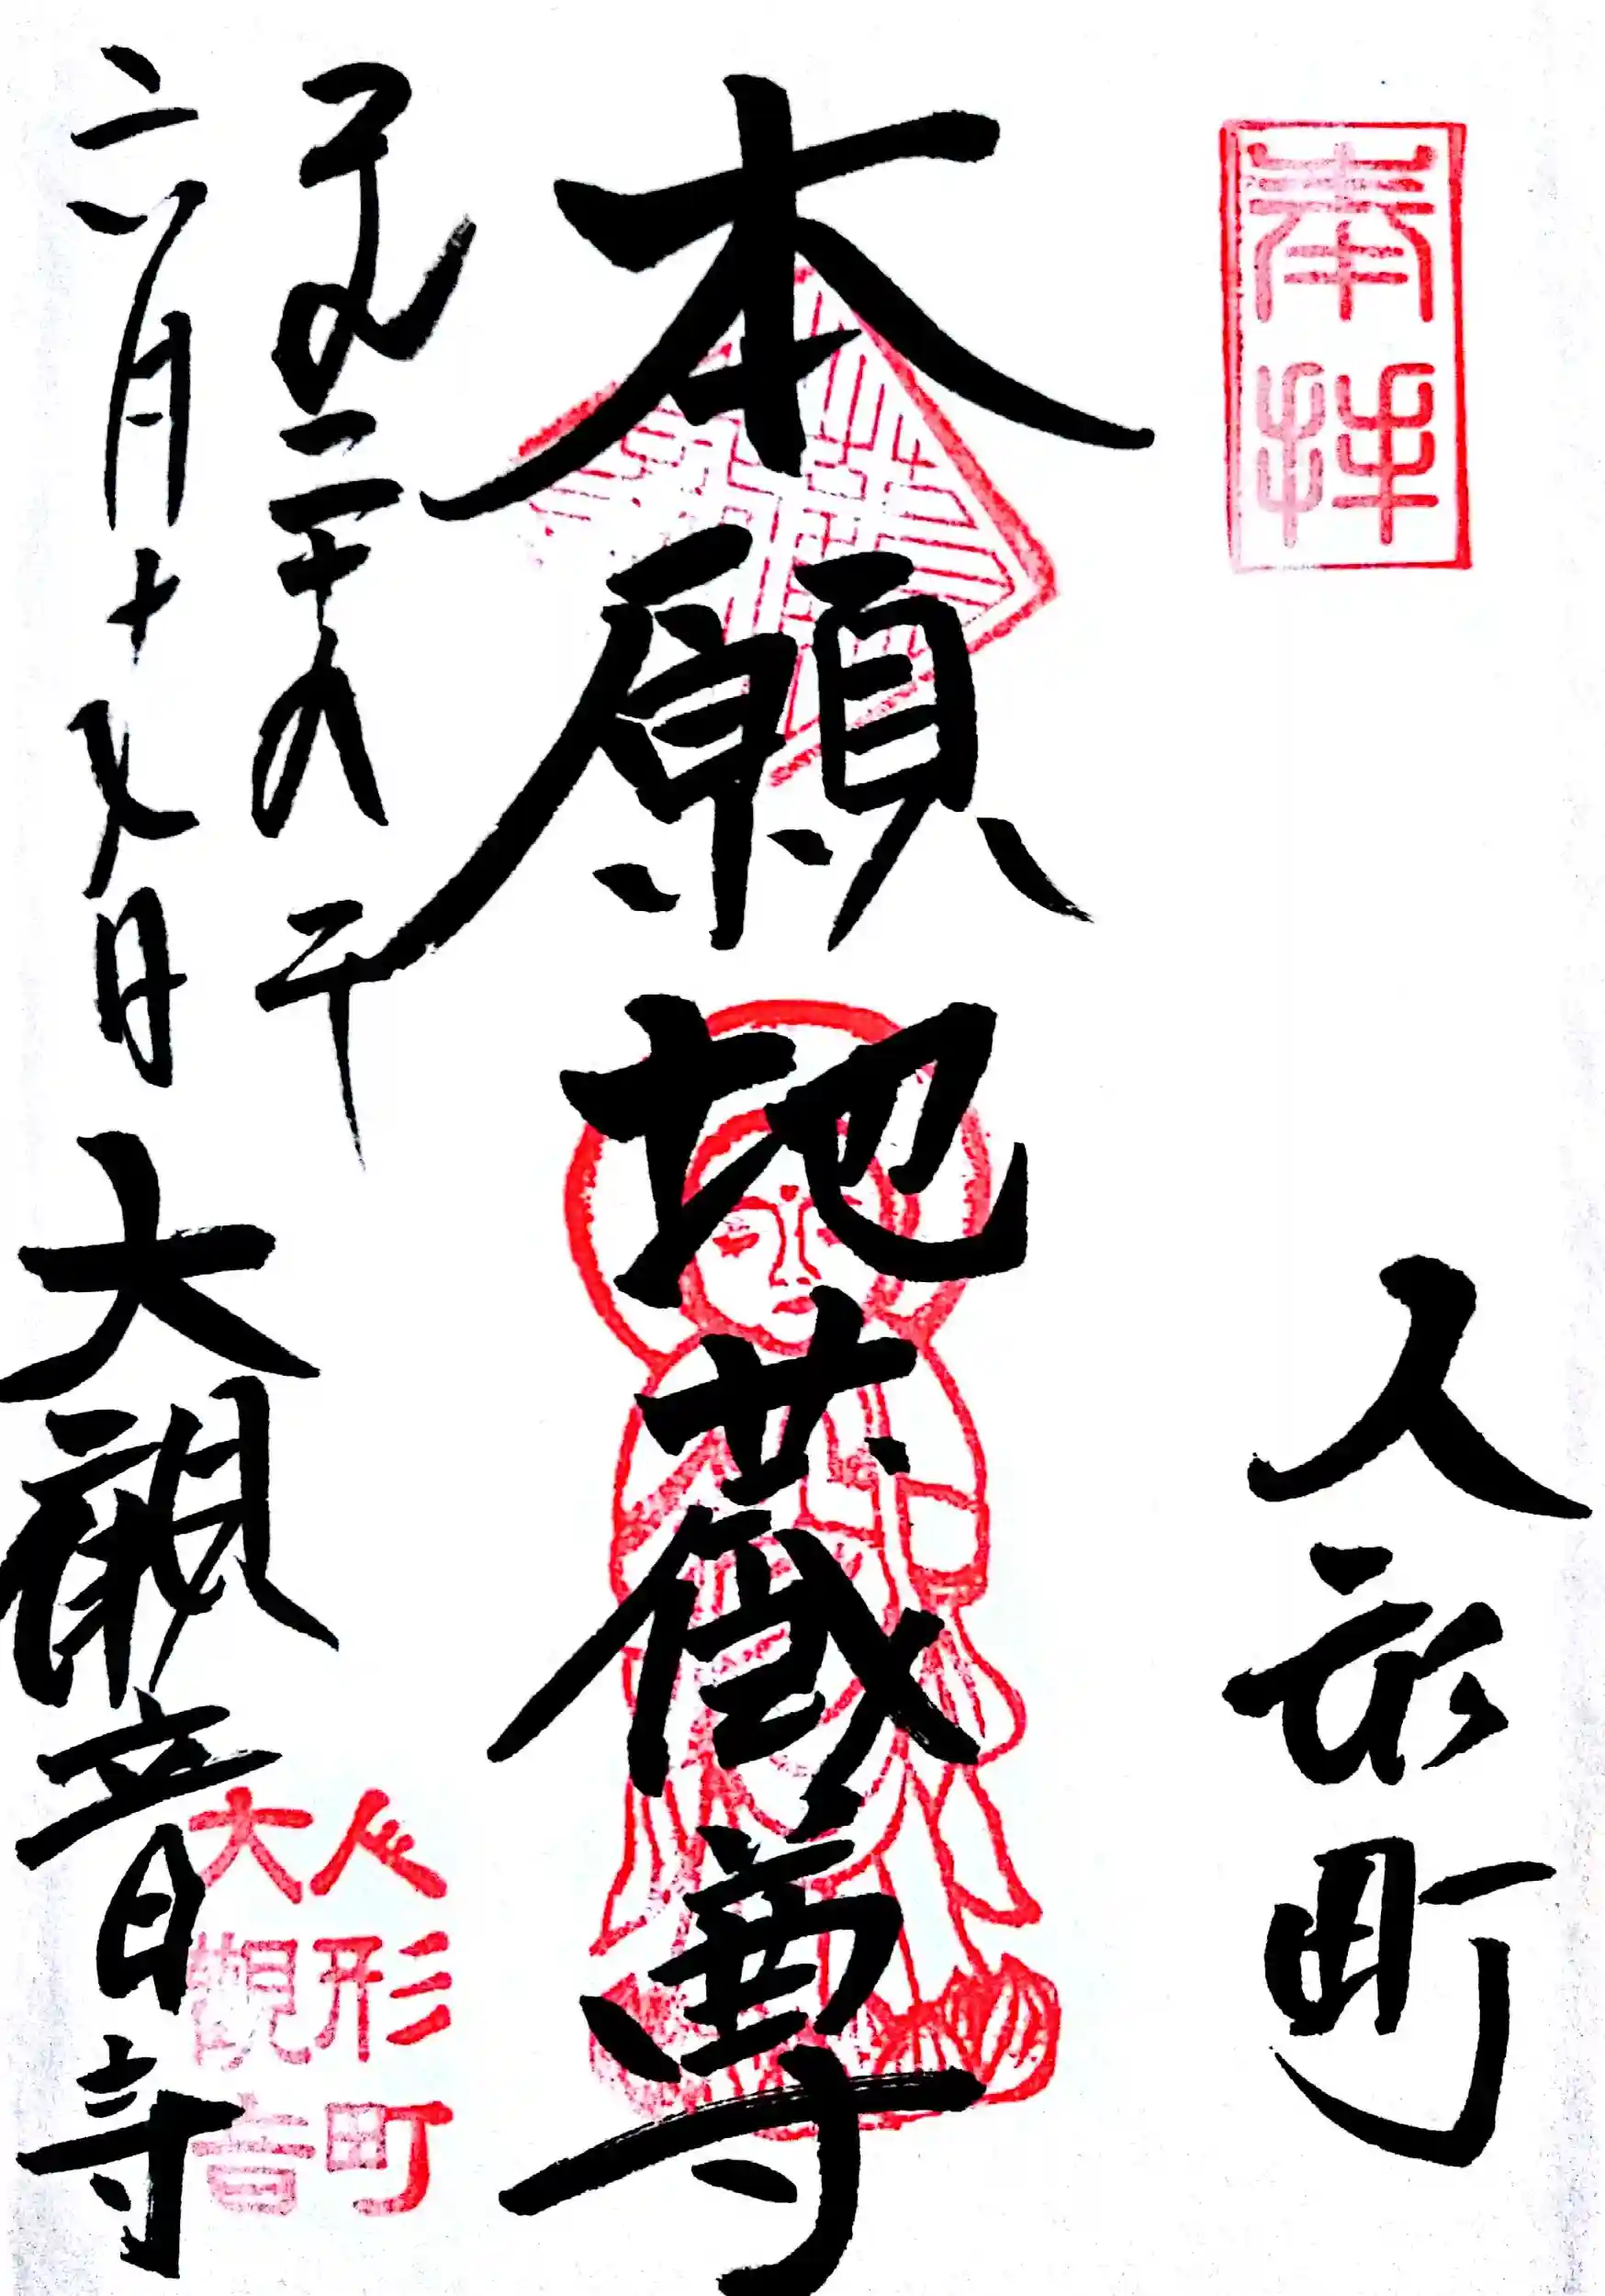 奉拝
人形町
本願地蔵尊
平成二十八年
六月十九日
大観音寺
人形町
大観音